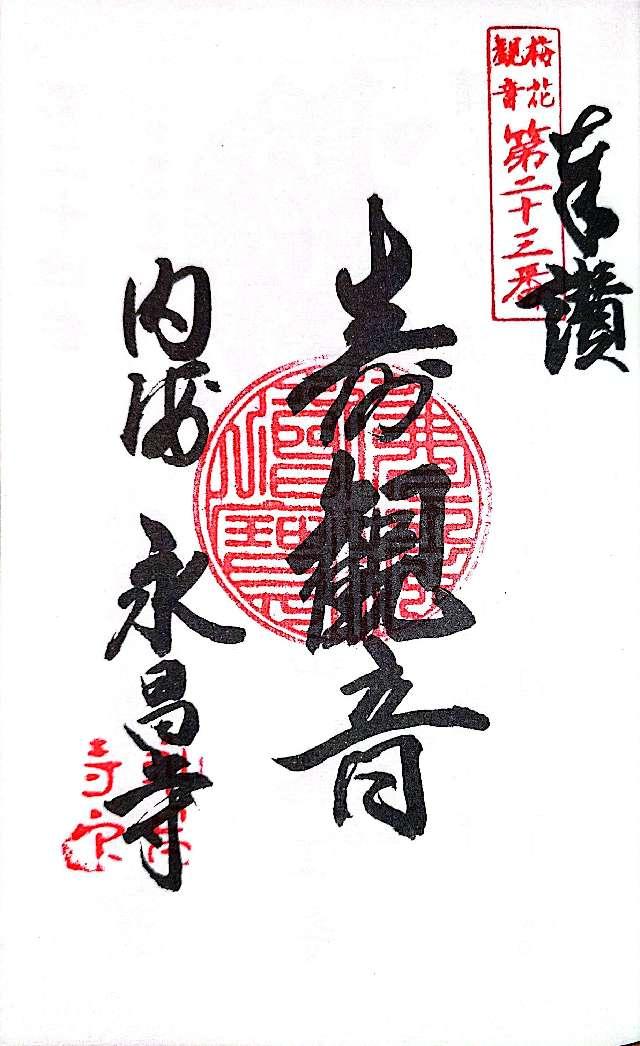 奉讃
梅花
観音
第二十三番
寿観音
佛法僧寶
内海 永昌寺